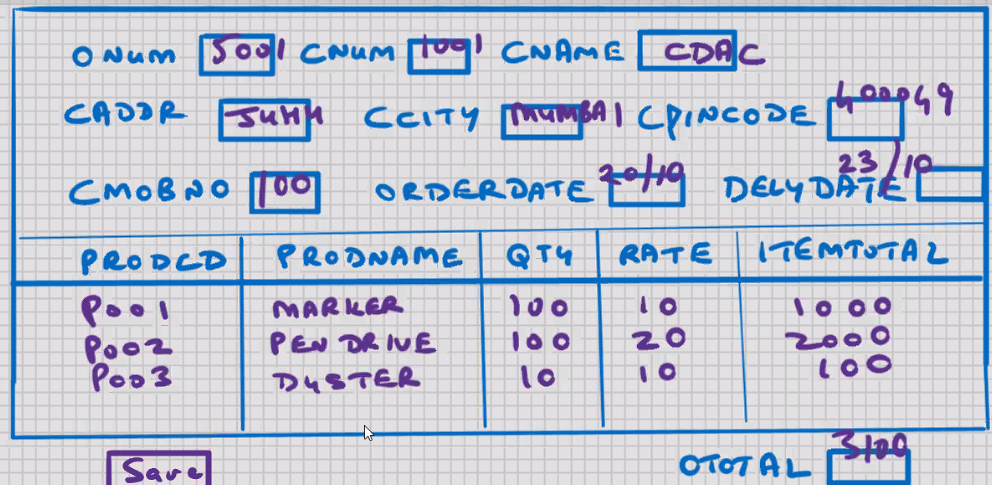 ONUM 5001 CNUM 1001 CNAME CDAC
CADDR JUHU CCITY MUMBAI CPINCODE 400049
CMOBNO 100 ORDERDATE 20/10 DELYDATE 23/10
PRODCD PRODNAME QTY RATE ITEMTOTAL
P001 MARKER 100 10 1000
P002 PENDRIVE 100 20 2000
P003 DUSTER 10 10 100
Save OTOTAL 3100